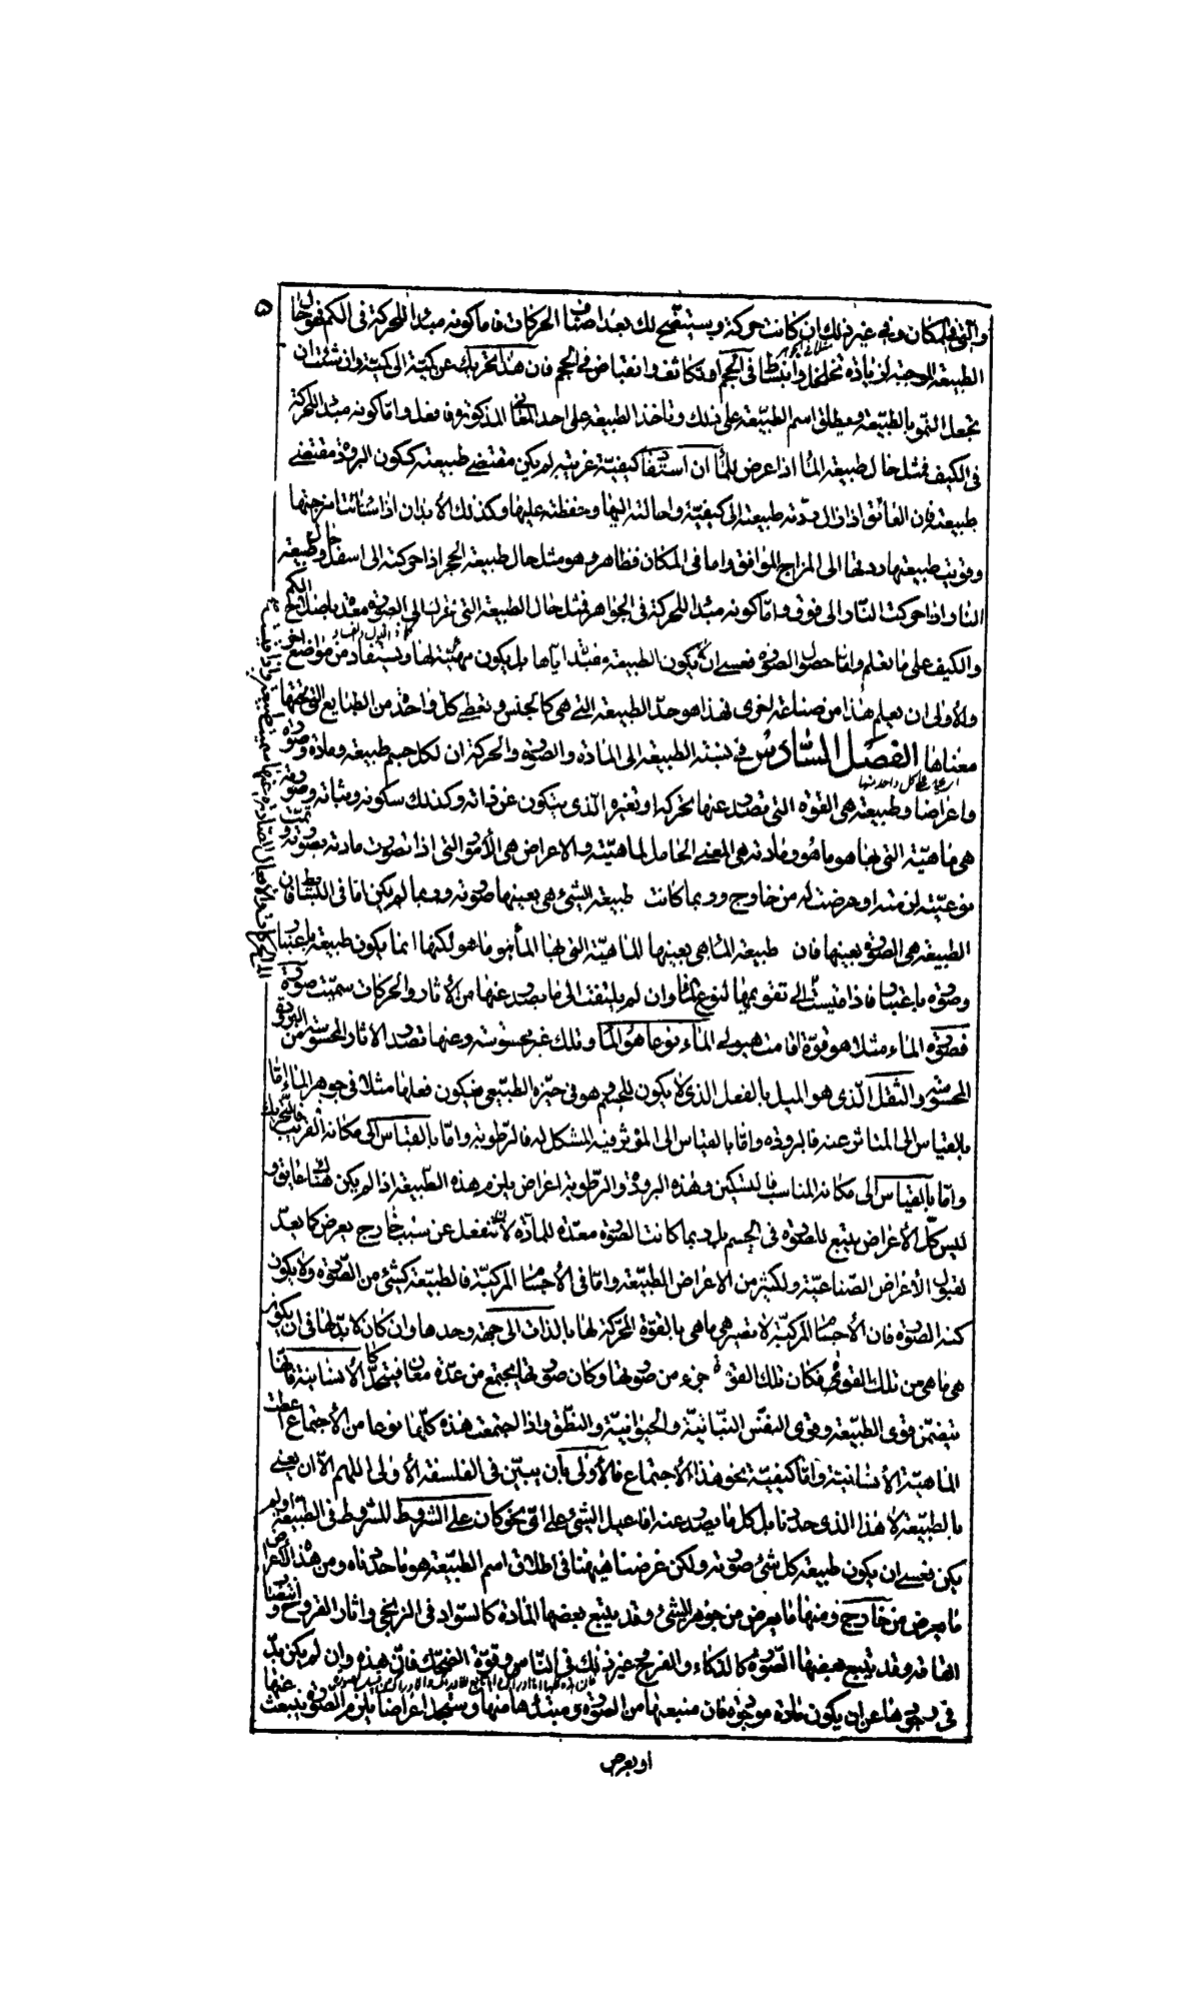 ۵
والتى فى المكان وفى غير ذلك ان كانت حركة وسيتضح لك بعد اصناف الحركات فاما كونه مبدا للحركة فى الكم فهو حال
الطبيعة الموجبة لزيادة تخلخل وانبساط فى الحجم او تكاثف وانقباض فى الحجم فان هذا تحريك عن كمية الى كمية وان شئت ان
تجعل النمو بالطبيعة وتطلق اسم الطبيعة على ذلك وتاخذ الطبيعة على احد المعانى المذكورة فافعل واما كونه مبدا للحركة
فى الكيف فمثل حال طبيعة الماء اذا عرض للماء ان استفاد كيفية غريبة لم يكن مقتضى طبيعته ككون البرودة مقتضى
طبيعته فان العائق اذا زال ردته طبيعته الى كيفيته واحالته اليها وحفظته عليها وكذلك الابدان اذا ساءت امزجتها
وقويت طبيعتها ردتها الى المزاج الموافق واما فى المكان فظاهر وهو مثل حال طبيعة الحجر اذا حركته الى اسفل وحال طبيعة
النار اذا حركت النار الى فوق واما كونه مبدا للحركة فى الجواهر فمثل حال الطبيعة التى تحرك الى الصورة معدة باصلاح الكم
والكيف على ما تعلم واما حصول الصورة فعسى ان لا يكون الطبيعة مفيدة اياها بل يكون مهيئة لها وتستفاد من موضع اخر
والاولى ان يعلم هذا من صناعة اخرى فهذا هو حد الطبيعة التى هى كالجنس وتعطى كل واحدة من الطبايع التى تحتها
معناها الفصل السادس فى نسبة الطبيعة الى المادة والصورة والحركة ان لكل جسم طبيعة ومادة وصورة
واعراضا وطبيعته هى القوة التى تصدر عنها تحركه او تغيره الذى يتكون عن ذاته وكذلك سكونه وثباته وصورته
هى ماهيته التى بها هو ما هو ومادته هى المعنى الحامل لماهيته والاعراض هى الامور التى اذا تصورت مادته بصورته وتمت
نوعيته لزمته او عرضت له من خارج وربما كانت طبيعة الشىء هى بعينها صورته وربما لم يكن اما فى البسائط فان
الطبيعة هى الصورة بعينها فان طبيعة الماء هى بعينها الماهية التى بها الماء هو ما هو لكنها انما يكون طبيعة باعتبار
وصورة باعتبار فاذا قيست الى تقويمها لنوع الماء وان لم يلتفت الى ما يصدر عنها من الاثار والحركات سميت صورة
فصورة الماء مثلا هو قوة اقامت هيولى الماء نوعا هو الماء وتلك غير محسوسة وعنها تصدر الاثار المحسوسة من البرودة
المحسوسة والثقل الذى هو الميل بالفعل الذى لا يكون للجسم هو فى حيزه الطبيعى فيكون فعلها مثلا فى جوهر الماء اما
بالقياس الى المتاثر عنه فالبرودة واما بالقياس الى المؤثر فيه المشكل له فالرطوبة واما بالقياس الى مكانه القريب فالتحريك
واما بالقياس الى مكانه المناسب فالتسكين وهذه البرودة والرطوبة اعراض يلزم هذه الطبيعة اذا لم يكن هناك عايق و
ليس كل الاعراض يتبع للصورة فى الجسم بل ربما كانت الصورة معدة للمادة لان تنفعل عن سبب خارج يعرض كما يعد
لقبول الاعراض الصناعية ولكثير من الاعراض الطبيعة واما فى الاجسام المركبة فالطبيعة كشىء من الصورة ولا يكون
كنه الصورة فان الاجسام المركبة لا تصير هى ما هى بالقوة المحركة لها بالذات الى جهة وحدها وان كان لا بد لها فى ان يكون
هى ما هى من تلك القوى فكان تلك القوة جزء من صورتها وكان صورتها يجتمع من عدة معان فيتحد كالانسانية فانها
يتضمن قوى الطبيعة وقوى النفس النباتية والحيوانية والنطق واذا اجتمعت هذه كلها نوعا من الاجتماع اعطت
الماهية الانسانية واما كيفية نحو هذا الاجتماع فالاولى بان يبين فى الفلسفة الاولى اللهم الا ان يعنى
بالطبيعة لا هذا الذى حددنا بل كل ما يصدر عنه افاعيل الشىء على اى نحو كان على الشروط المشروط فى الطبيعة او لم
يكن فعسى ان يكون طبيعة كل شىء صورته ولكن غرضنا هيهنا فى اطلاق اسم الطبيعة هو ما حددناه ومن هذه الاعراض
ما يعرض من خارج ومنها ما يعرض من جوهر الشىء وقد يتبع بعضها المادة كالسواد فى الزنجى واثار القروح وانتصاب
القامة وقد يتبع بعضها الصورة كالذكاء والفرح وغير ذلك فى الناس وقوة الضحك فان هذه وان لم يكن بد
فى وجودها عن ان يكون مادة موجودة فان منبعها من الصورة ومبتداها منها وستجد اعراضا يلزم الصورة ينبعث عنها
او يعرض